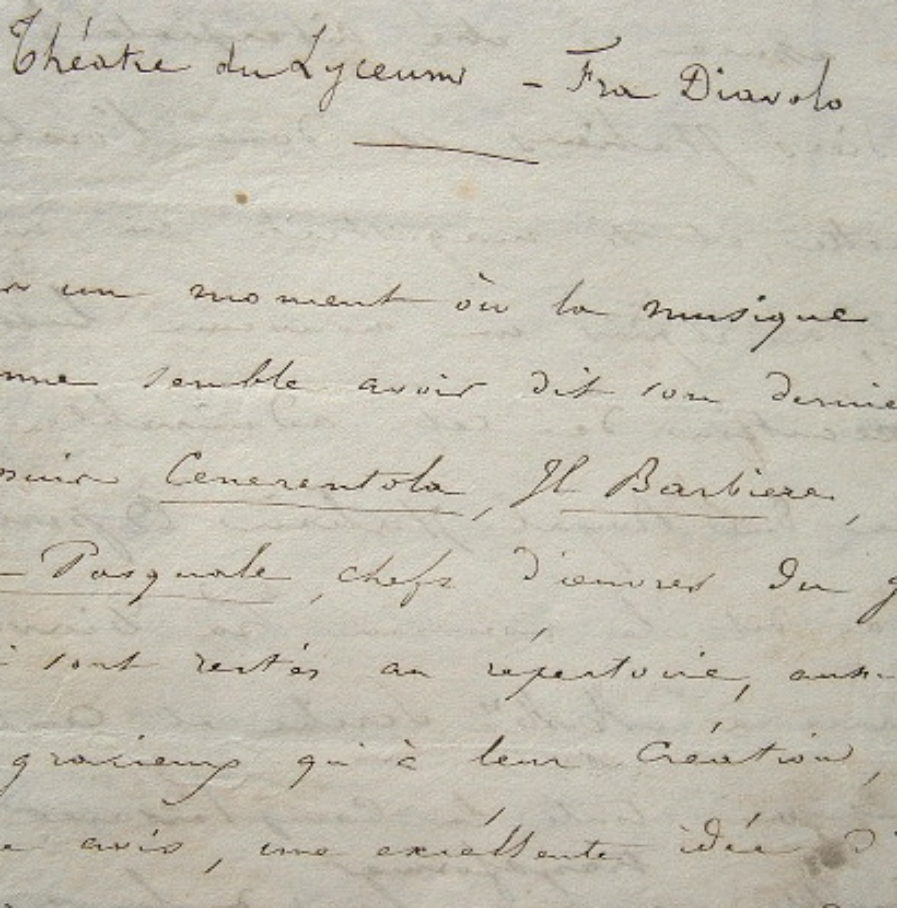 Théatre du Lyceum - Fra Diavolo
un moment òu la musique
semble avoir dit son dernie
Cenerentola, Il Barbiere,
- Pasquale, chefs d'œuvres du g
sont restés au répertoire, aussi
gracieux qu'à leur création,
avis, une excellente idée d'